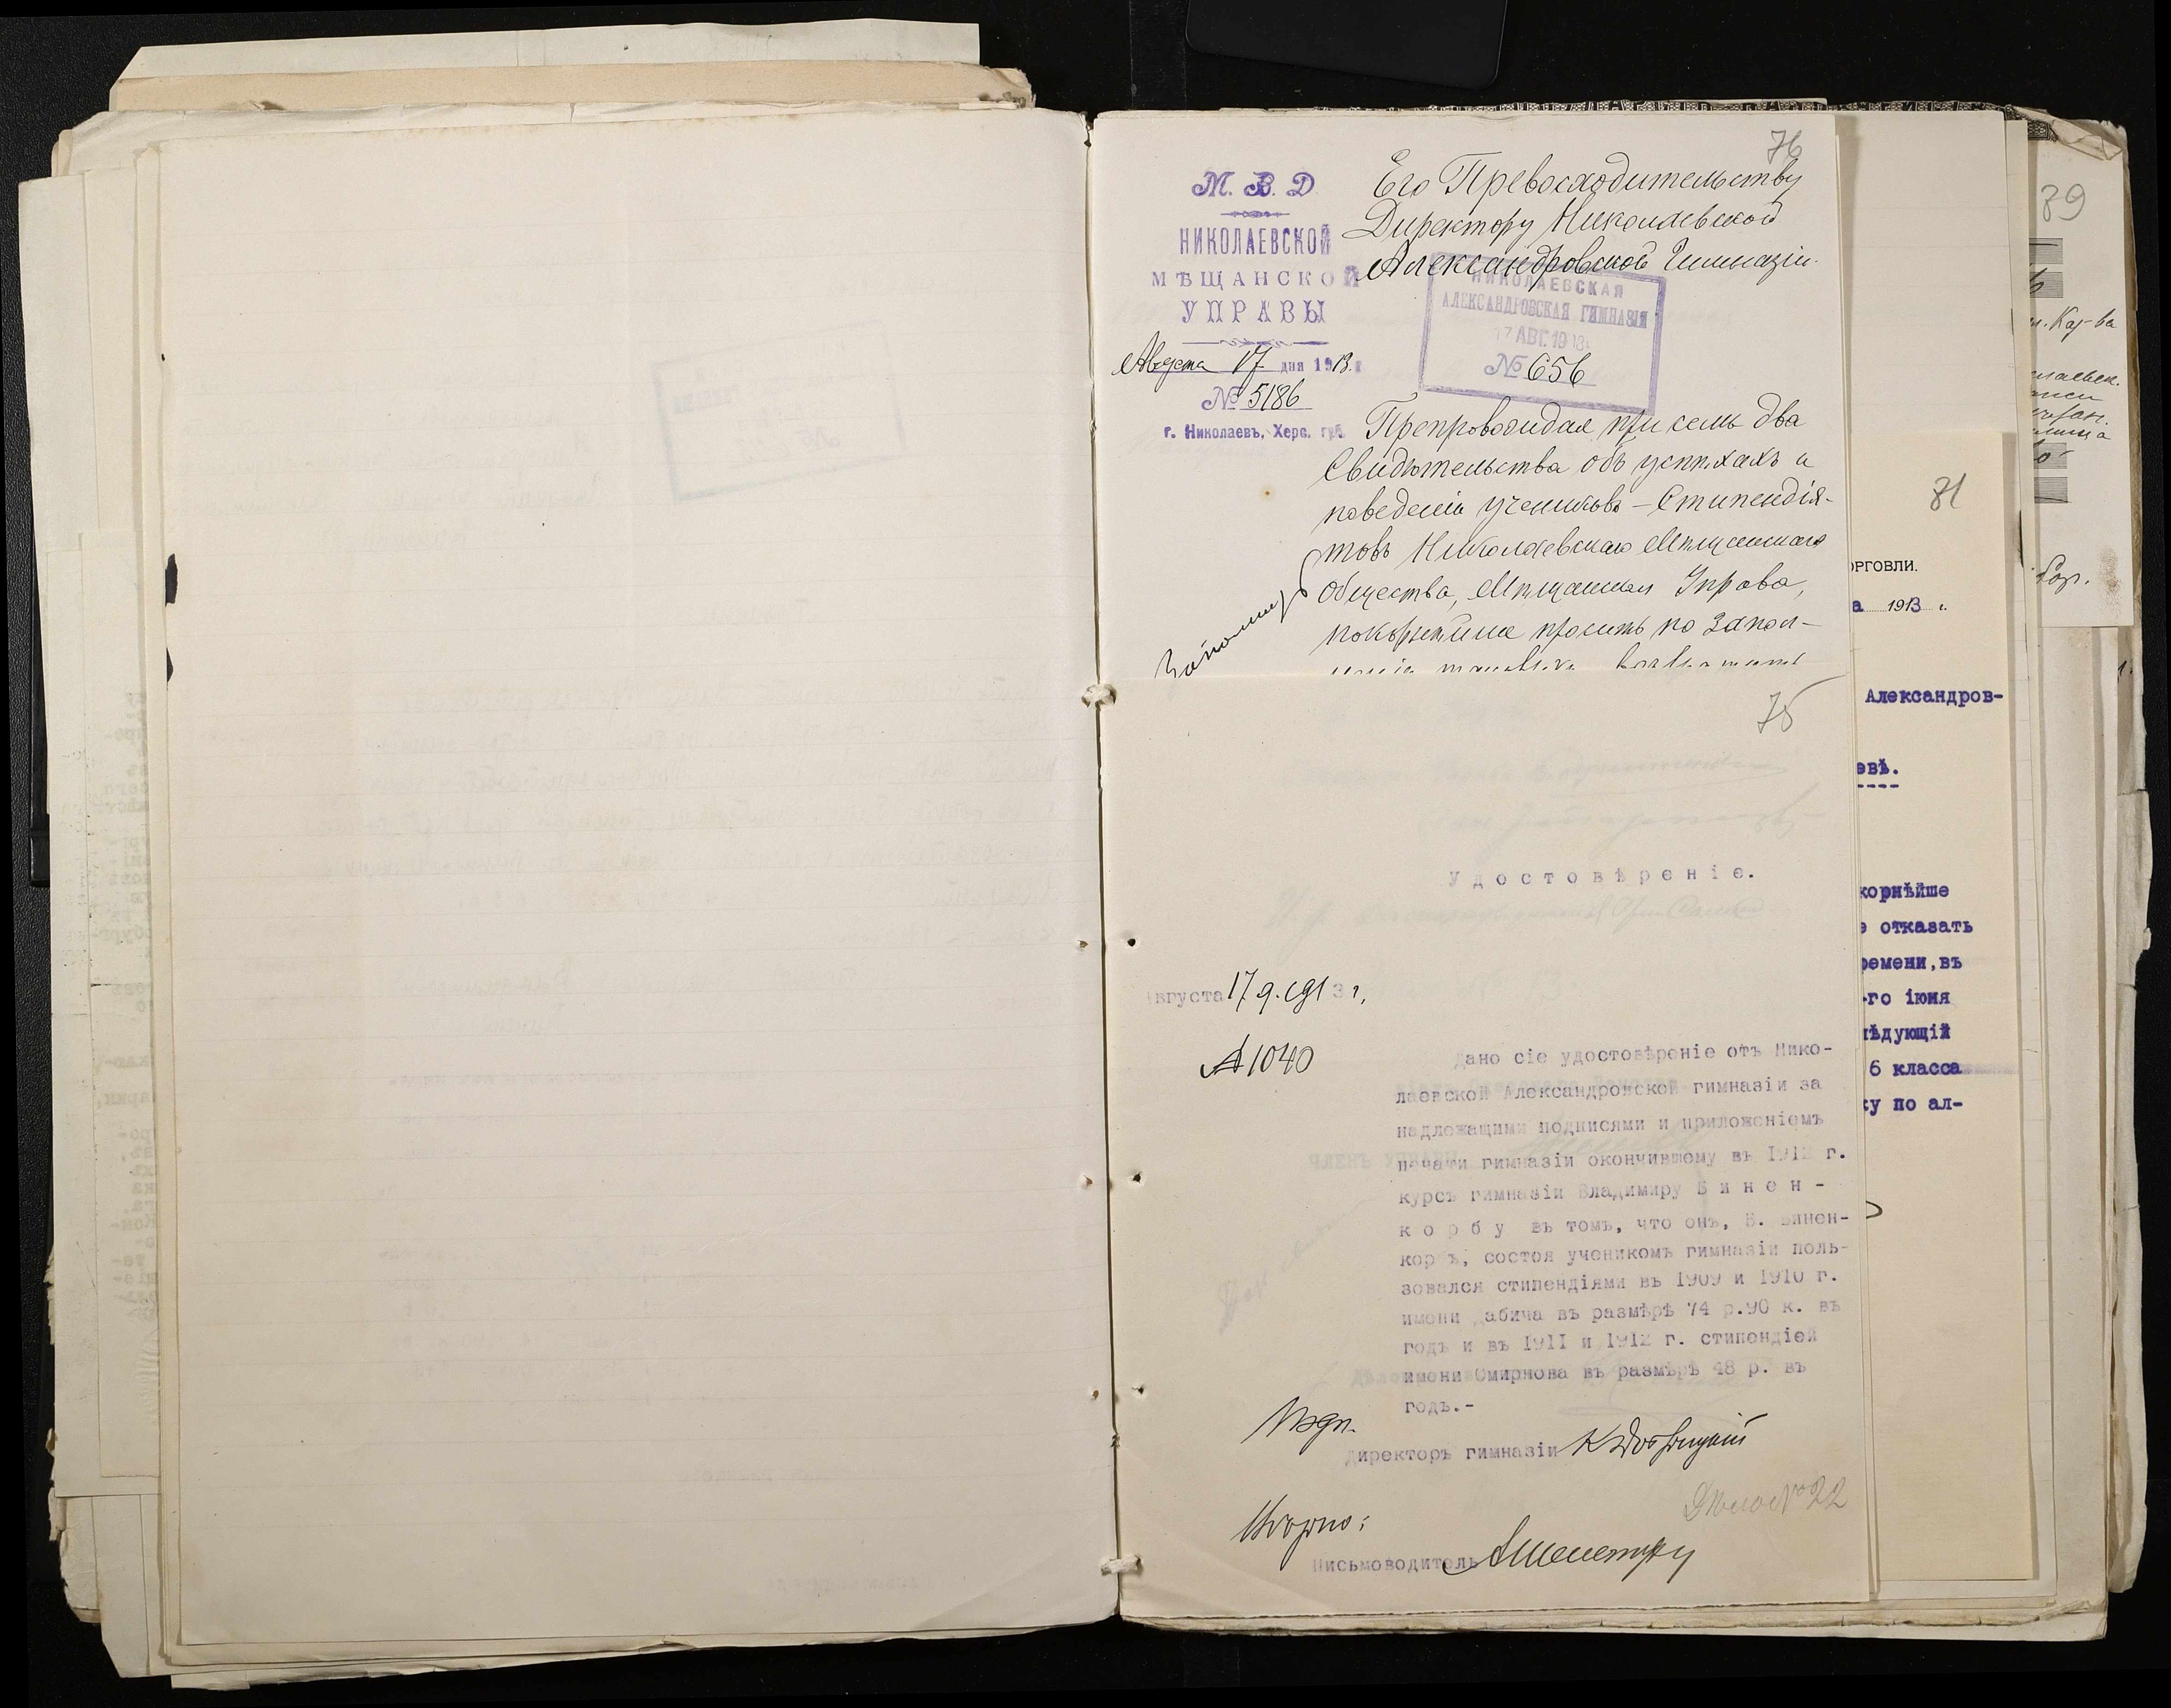 76
М. В. Д.
НИКОЛАЕВСКОЙ
МѢЩАНСКОЙ
УПРАВЫ
Августа 17 дня 1913 г.
№ 5186
г. Николаевъ, Херс. губ.
Его Превосходительству
Директору Николаевской
Александровской Гимназіи.
НИКОЛАЕВСКАЯ
АЛЕКСАНДРОВСКАЯ ГИМНАЗІЯ
17 АВГ. 1913
№ 656
Препровождая при семъ два
Свидѣтельства объ успѣхахъ и
поведеніи учениковъ – Стипендія-
товъ Николаевскаго Мѣщанскаго
Общества, Мѣщанская Управа,
покорнѣйше проситъ по запол-
неніи таковыхъ возвратить
75
Удостовѣреніе.
Августа 17 д. 1913 г.
№ 1040
Дано сіе удостовѣреніе отъ Нико-
лаевской Александровской гимназіи за
надлежащими подписями и приложеніемъ
печати гимназіи окончившему въ 1912 г.
курсъ гимназіи Владимиру Б и н е н -
к о р б у въ томъ, что онъ, В. Бинен-
корбъ, состоя ученикомъ гимназіи поль-
зовался стипендіями въ 1909 и 1910 г.
имени абича въ размѣрѣ 74 р.90 к. въ
годъ и въ 1911 и 1912 г. стипендіей
имени Смирнова въ размѣрѣ 48 р. въ
годъ.-
Подп.
Директоръ гимназіи
Вѣрно:
Письмоводитель
Дѣло № 22
81
ОРГОВЛИ.
а 1913 г.
Александров-
евѣ.
корнѣйше
е отказать
ремени, въ
-го іюня
лѣдующій
6 класса
ку по ал-
89